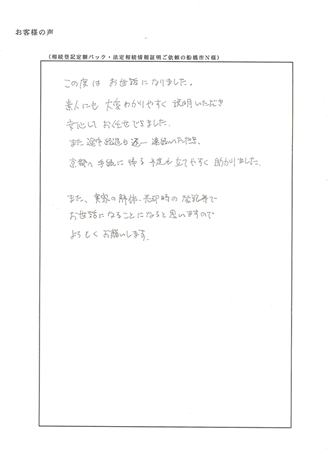 お客様の声
(相続登記定額パック・法定相続情報証明ご依頼の船橋市N様)
この度は お世話になりました。
素人にも 大変わかりやすく 説明いただき
安心して お任せできました。
また 途中経過も 逐一 連絡いただき、
京都へ 手続に 帰る 予定も 立てやすく 助かりました。
また、実家の解体・売却時の 登記等で
お世話になることになると思いますので
よろしくお願いします。